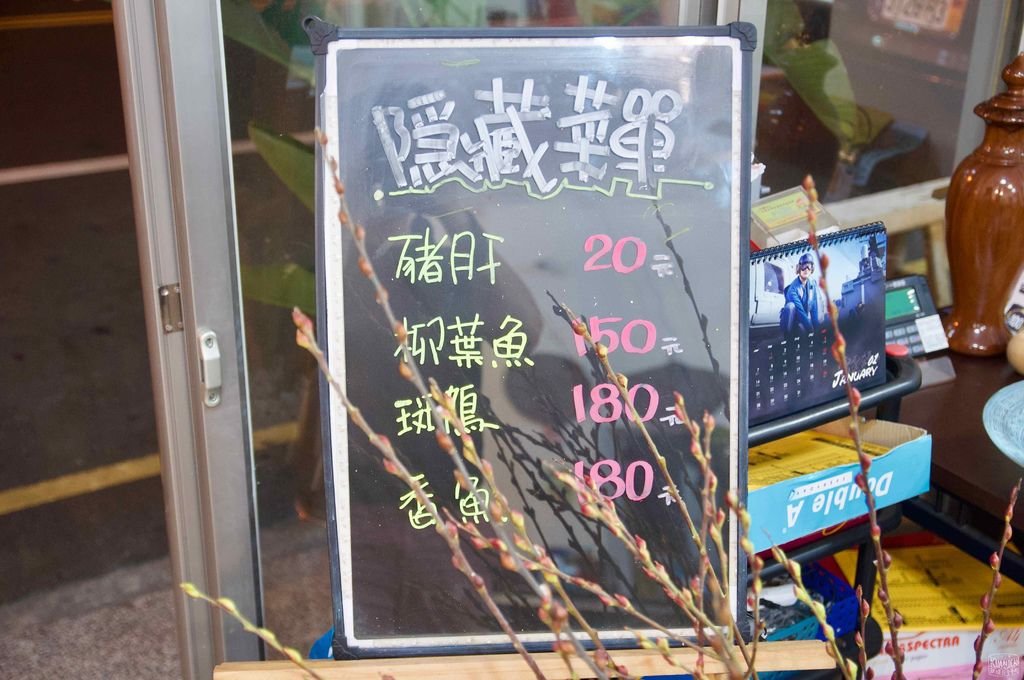 隱藏菜單
豬肝 20元
柳葉魚 150元
斑鳩 180元
香魚 180元
01
JANUARY
Double A
SPECTRA